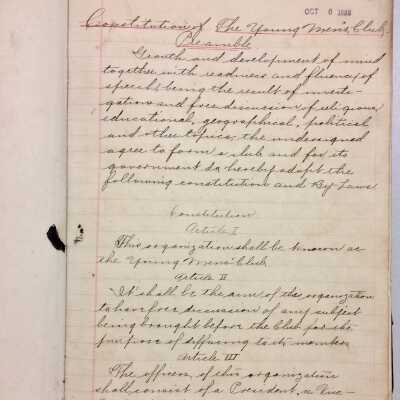 OCT 6 1888
Constitution of The Young Men's Club.
Preamble
Growth and development of mind
together with readiness and fluency of
speech being the result of investi-
gation and free discussion of religious,
educational, geographical, political
and other topics, the undersigned
agree to form a club and for its
government do hereby adopt the
following constitution and By-Laws
Constitution
Article I
This organization shall be known as
the Young Men's Club
Article II
It shall be the aim of this organization
to have free discussion of any subject
being brought before the Club for the
purpose of diffusing to its members
Article III
The officers of this organization
shall consist of a President, a Vice-